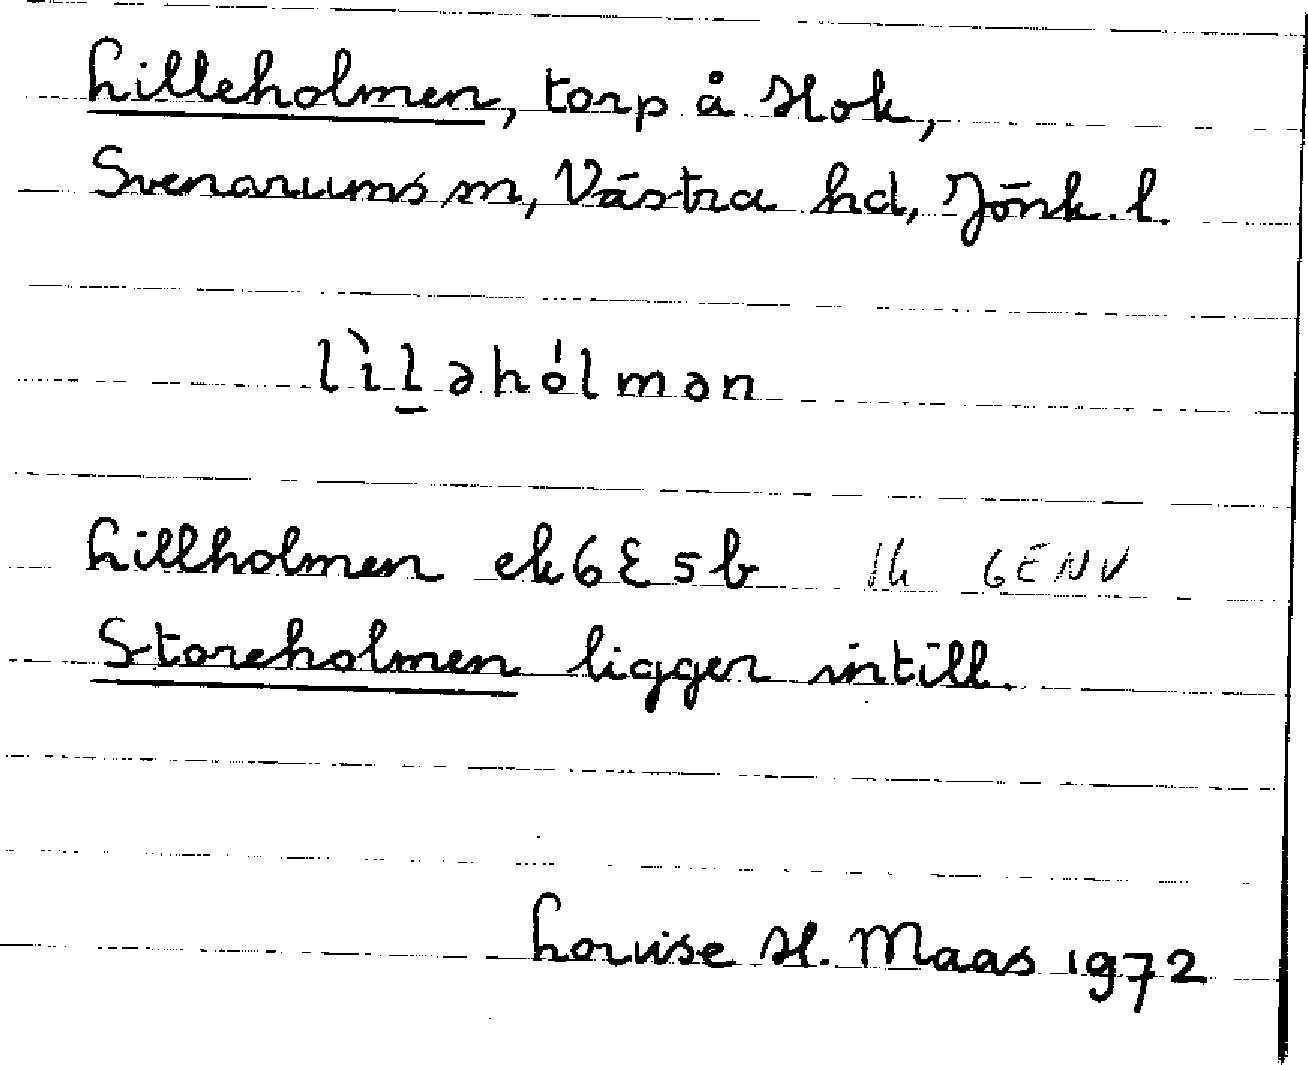 Lilleholmen, torp å Hok,
Svenarums sn, Västra hd, Jönk. l.
lìl̠əhólmən
Lillholmen ek 6E5b 1h 6ENV
Storeholmen ligger intill.
Louise H. Maas 1972